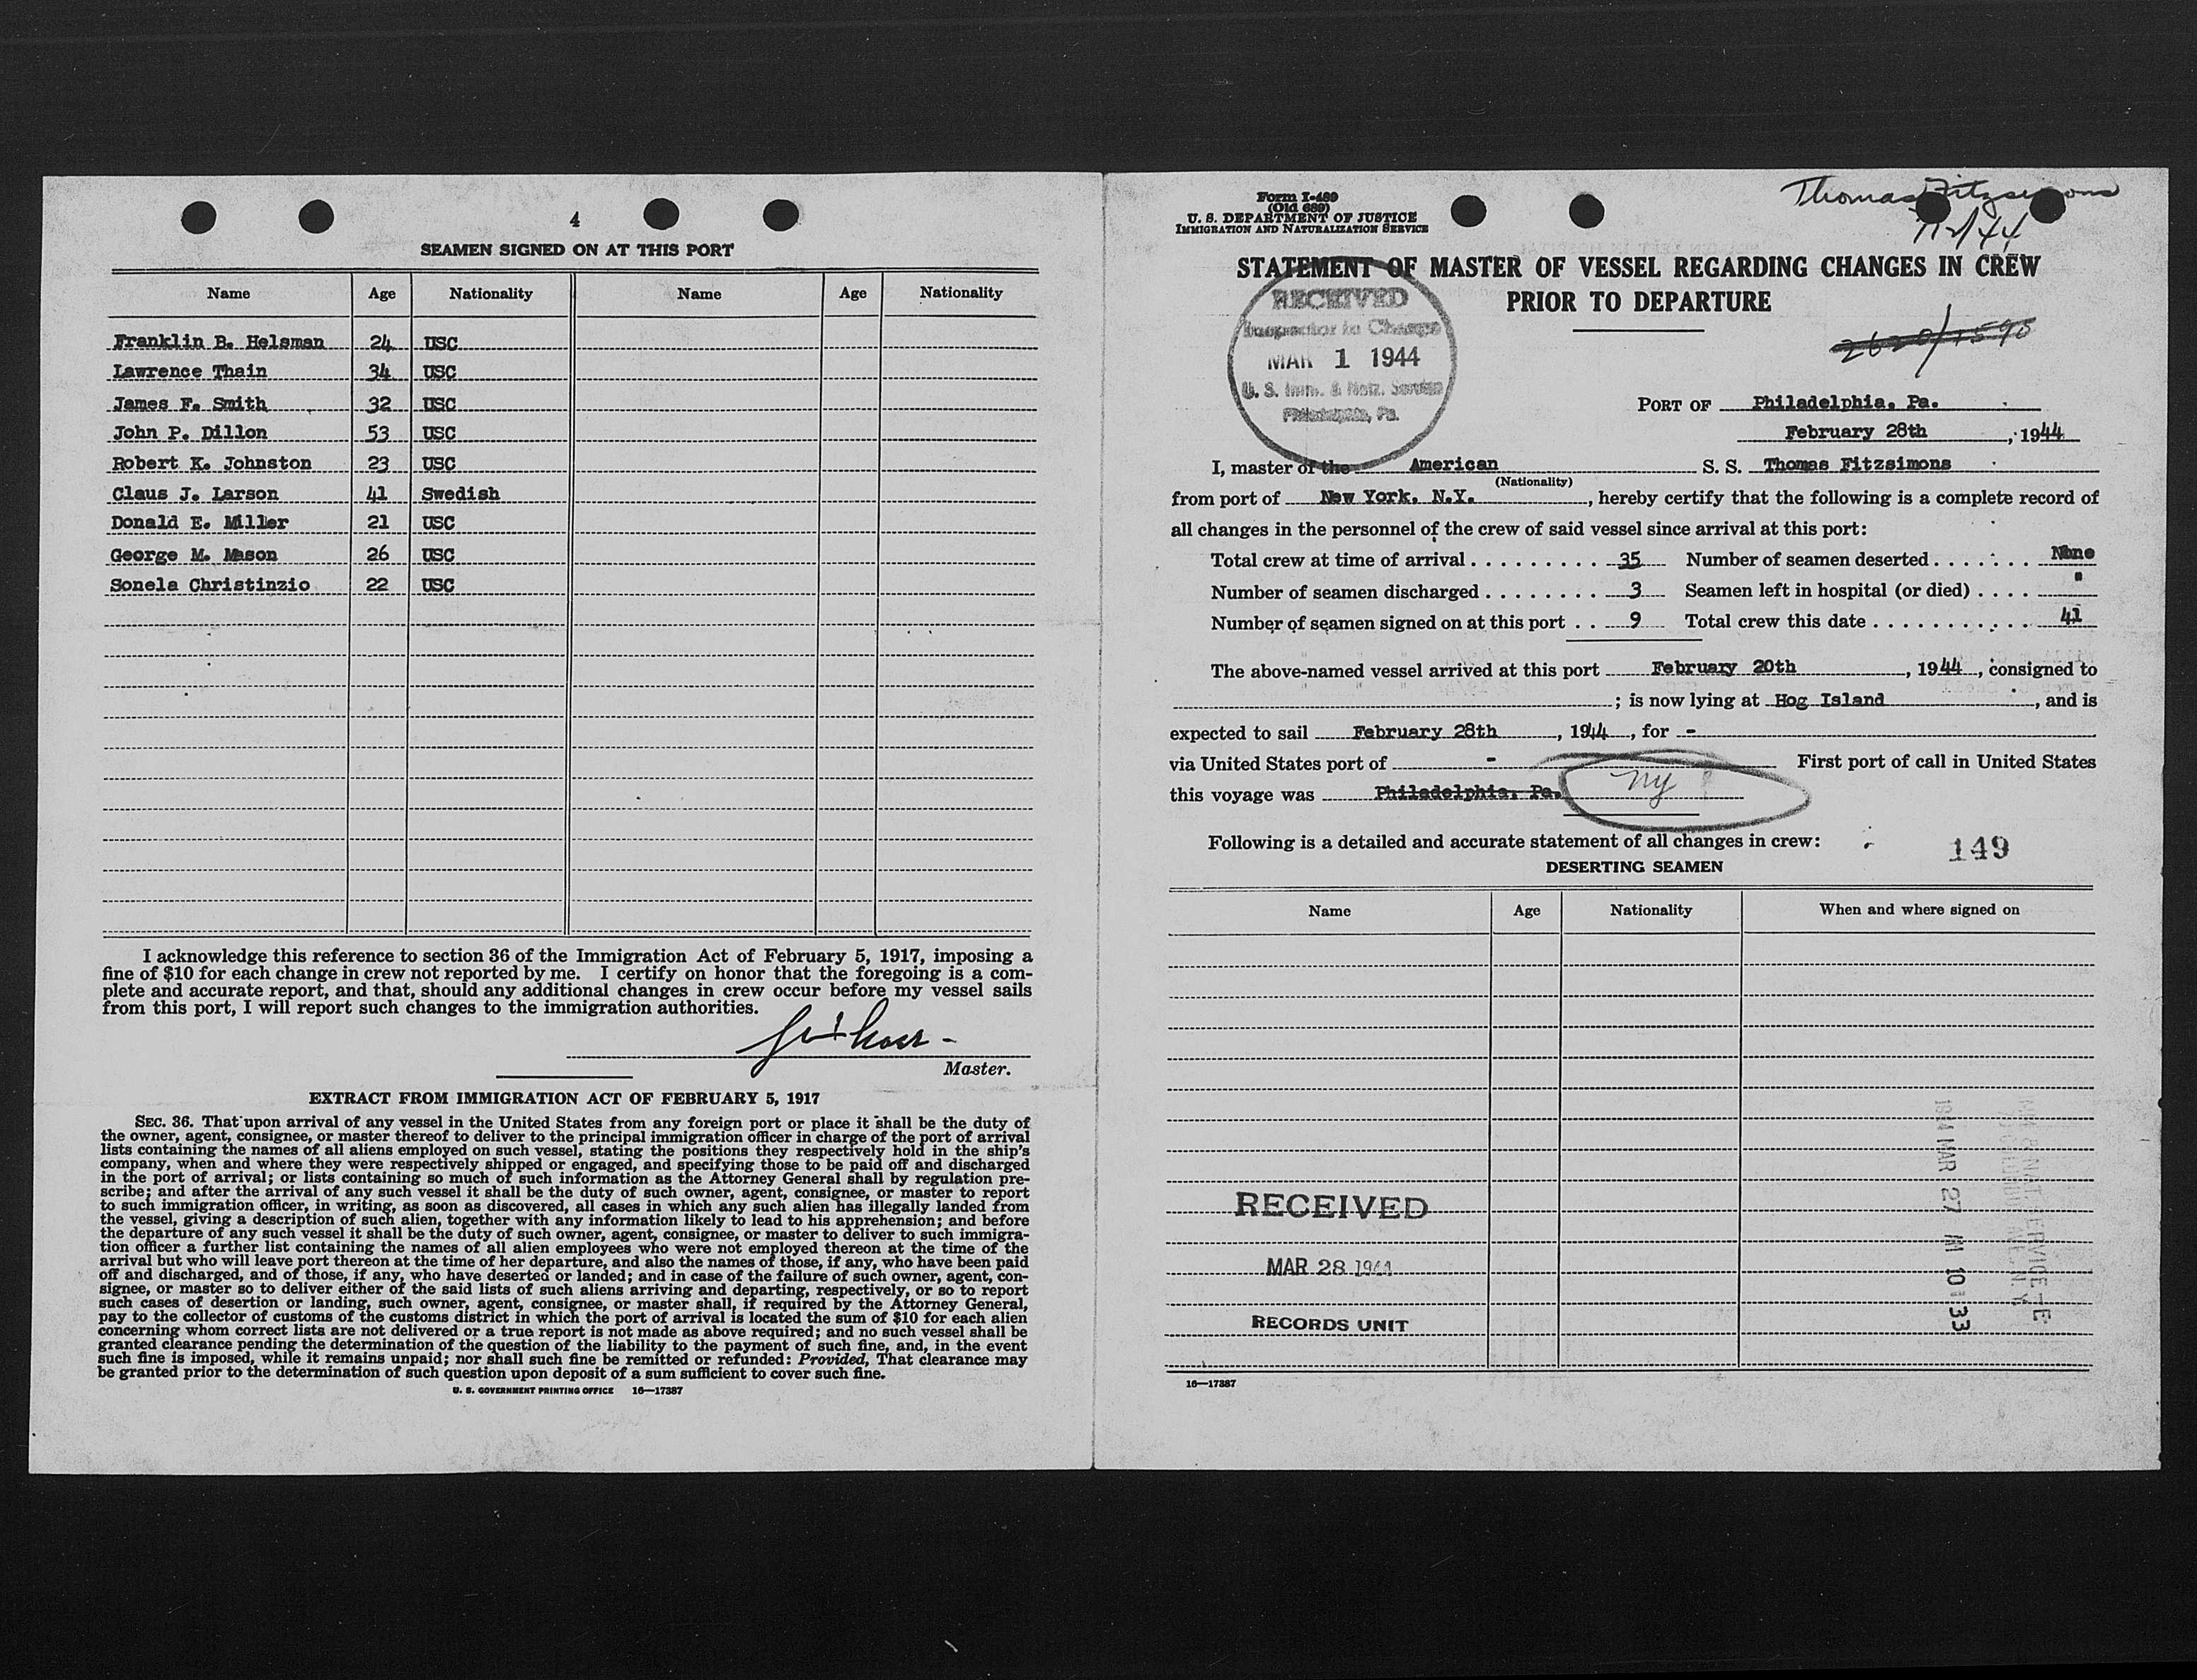 4
SEAMEN SIGNED ON AT THIS PORT
Name Age Nationality Name Age Nationality
Franklin B. Helsman 24 USC
Lawrence Thain 34 USC
James F. Smith 32 USC
John P. Dillon 53 USC
Robert K. Johnston 23 USC
Claus J. Larson 41 Swedish
Donald E. Miller 21 USC
George M. Mason 26 USC
Sonela Christinzio 22 USC
I acknowledge this reference to section 36 of the Immigration Act of February 5, 1917, imposing a
fine of $10 for each change in crew not reported by me. I certify on honor that the foregoing is a com-
plete and accurate report, and that, should any additional changes in crew occur before my vessel sails
from this port, I will report such changes to the immigration authorities.
Master.
EXTRACT FROM IMMIGRATION ACT OF FEBRUARY 5, 1917
SEC. 36. That upon arrival of any vessel in the United States from any foreign port or place it shall be the duty of
the owner, agent, consignee, or master thereof to deliver to the principal immigration officer in charge of the port of arrival
lists containing the names of all aliens employed on such vessel, stating the positions they respectively hold in the ship's
company, when and where they were respectively shipped or engaged, and specifying those to be paid off and discharged
in the port of arrival; or lists containing so much of such information as the Attorney General shall by regulation pre-
scribe; and after the arrival of any such vessel it shall be the duty of such owner, agent, consignee, or master to report
to such immigration officer, in writing, as soon as discovered, all cases in which any such alien has illegally landed from
the vessel, giving a description of such alien, together with any information likely to lead to his apprehension; and before
the departure of any such vessel it shall be the duty of such owner, agent, consignee, or master to deliver to such immigra-
tion officer a further list containing the names of all alien employees who were not employed thereon at the time of the
arrival but who will leave port thereon at the time of her departure, and also the names of those, if any, who have been paid
off and discharged, and of those, if any, who have deserted or landed; and in case of the failure of such owner, agent, con-
signee, or master so to deliver either of the said lists of such aliens arriving and departing, respectively, or so to report
such cases of desertion or landing, such owner, agent, consignee, or master shall, if required by the Attorney General,
pay to the collector of customs of the customs district in which the port of arrival is located the sum of $10 for each alien
concerning whom correct lists are not delivered or a true report is not made as above required; and no such vessel shall be
granted clearance pending the determination of the question of the liability to the payment of such fine, and, in the event
such fine is imposed, while it remains unpaid; nor shall such fine be remitted or refunded: Provided, That clearance may
be granted prior to the determination of such question upon deposit of a sum sufficient to cover such fine.
U. S. GOVERNMENT PRINTING OFFICE 16—17387
Form I-489
(Old 689)
U. S. DEPARTMENT OF JUSTICE
IMMIGRATION AND NATURALIZATION SERVICE
Thomas Fitzsimons
STATEMENT OF MASTER OF VESSEL REGARDING CHANGES IN CREW
PRIOR TO DEPARTURE
RECEIVED
Inspector in Charge
MAR 1 1944
U. S. Imm. & Natz. Service
Philadelphia, Pa.
PORT OF Philadelphia, Pa.
February 28th, 1944
I, master of the American S. S. Thomas Fitzsimons
(Nationality)
from port of New York, N.Y., hereby certify that the following is a complete record of
all changes in the personnel of the crew of said vessel since arrival at this port:
Total crew at time of arrival 35 Number of seamen deserted None
Number of seamen discharged 3 Seamen left in hospital (or died) "
Number of seamen signed on at this port 9 Total crew this date 41
The above-named vessel arrived at this port February 20th, 1944, consigned to
; is now lying at Hog Island, and is
expected to sail February 28th, 1944, for -
via United States port of - First port of call in United States
this voyage was Philadelphia, Pa. NY
Following is a detailed and accurate statement of all changes in crew:
149
DESERTING SEAMEN
Name Age Nationality When and where signed on
RECEIVED
MAR 28 1944
RECORDS UNIT
MAR 27 10 33
16—17387